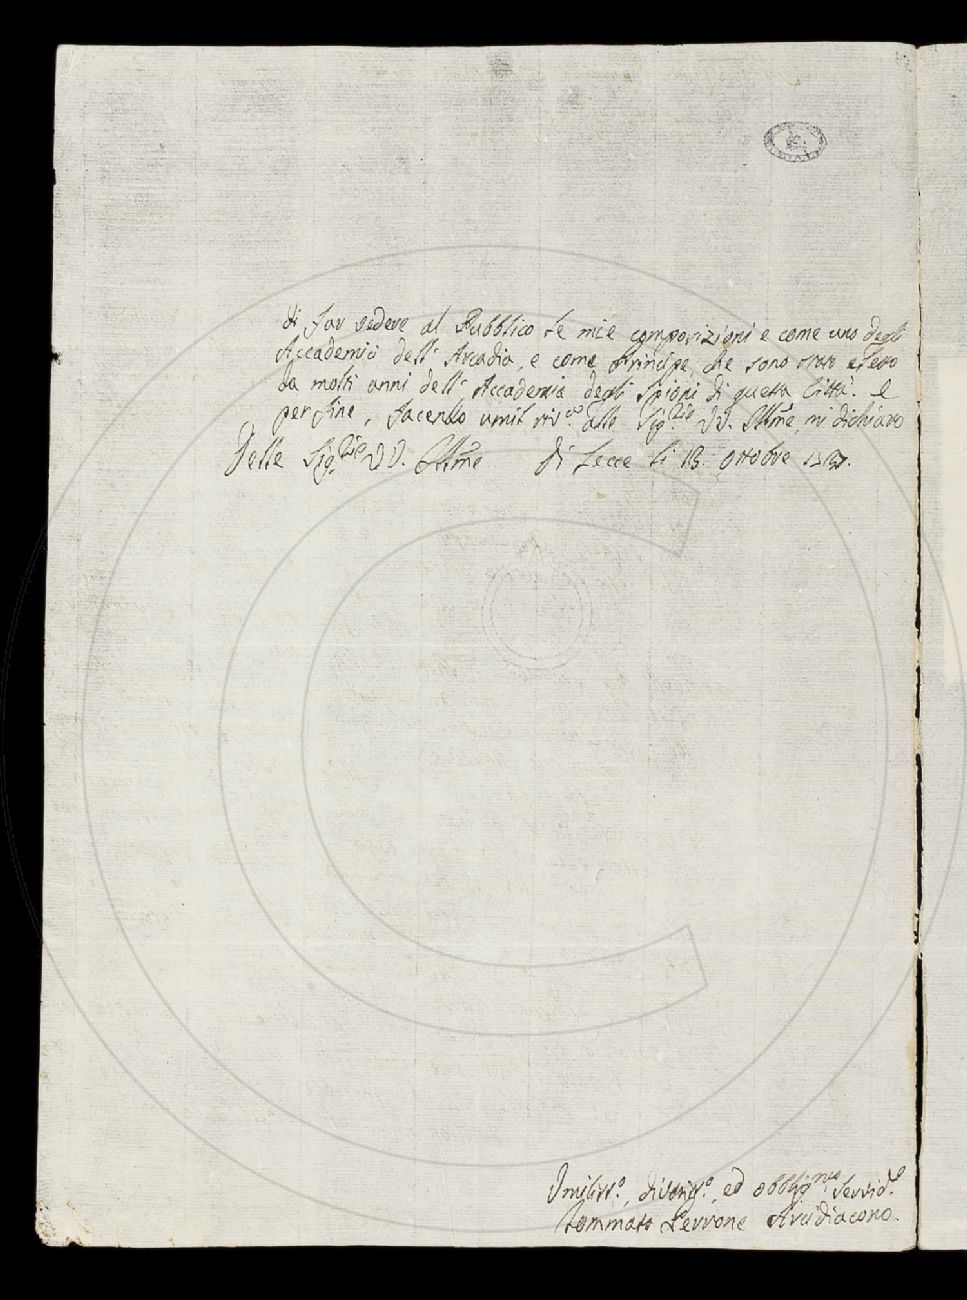 di far vedere al Pubblico le mie composizioni e come uno degli
Accademici dell' Arcadia, e come Principe, che sono stato eletto
da molti anni dell' Accademia degli Spioni di questa Città. E
per fine, facendo umil riv.ª alle Sig.rie VV. Ill.me mi dichiaro
Delle Sig.rie VV. Ill.me Di Lecce li 13. Ottobre
Umiliss.º, divotiss.º, ed obblig.mo Servid.e
Tommaso Perrone Arcidiacono.